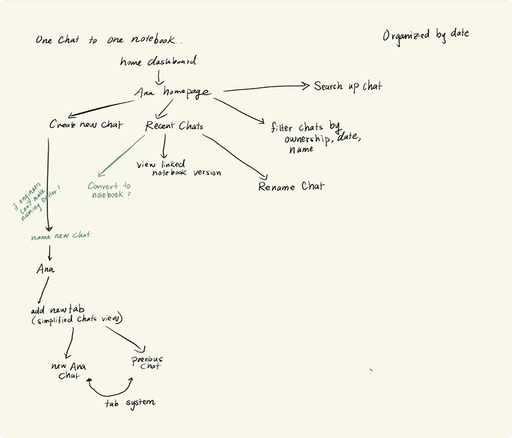 One Chat to one notebook..
Organized by date
home dashboard
Ana homepage
Search up chat
Create new chat
Recent Chats
filter chats by
ownership, date,
name
view linked
notebook version
Convert to
notebook?
Rename Chat
if engineers
can't make
naming
name new chat
Ana
add new tab
(simplified chats view)
new Ana
chat
previous
chat
tab system